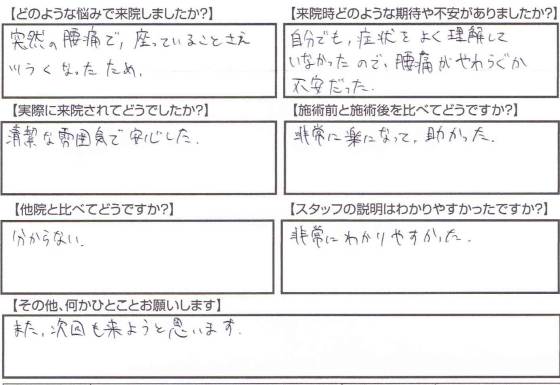 【どのような悩みで来院しましたか?】
突然の腰痛で,座っていることさえ
つらくなったため.
【来院時どのような期待や不安がありましたか?】
自分でも,症状をよく理解して
いなかったので,腰痛がやわらぐか
不安だった.
【実際に来院されてどうでしたか?】
清潔な雰囲気で安心した.
【施術前と施術後を比べてどうですか?】
非常に楽になって,助かった.
【他院と比べてどうですか?】
分からない.
【スタッフの説明はわかりやすかったですか?】
非常にわかりやすかった.
【その他、何かひとことお願いします】
また,次回も来ようと思います.